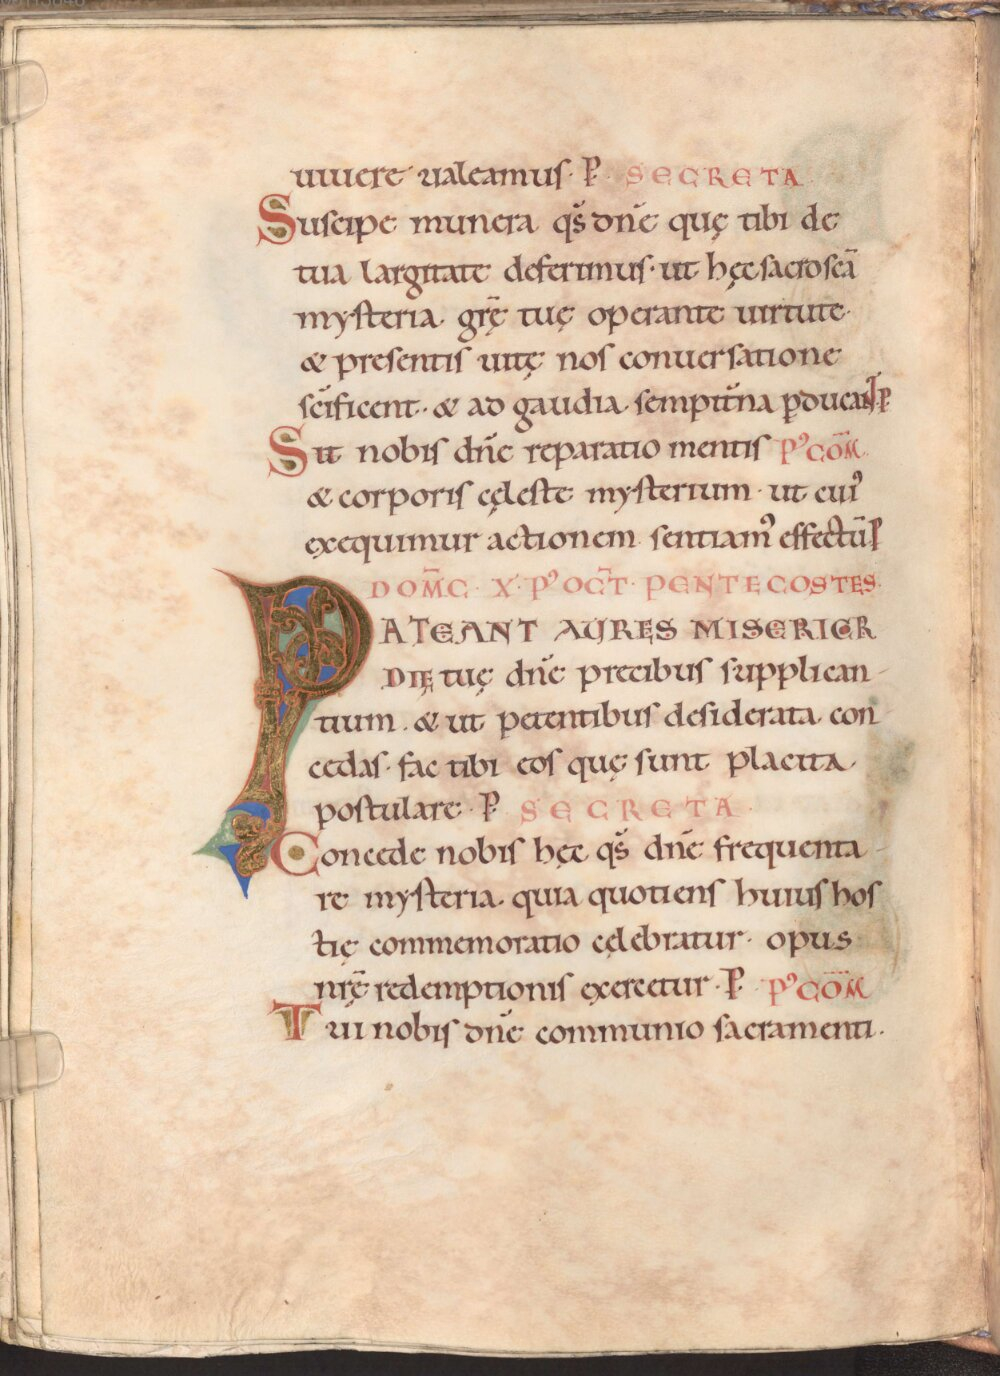 uiuere ualeamus· P̄ SECRETA
Suscipe munera qs̄ dn̄e quę tibi de
tua largitate deferimus· ut hęc sacrosc̄a
mysteria· gr̄ę tuę operante uirtute·
& presentis uitę nos conuersatione
sc̄ificent· & ad gaudia sempit̄na ꝑducant P̄
Sit nobis dn̄e reparatio mentis Pꝰ COM̄
& corporis cęleste mysterium· ut cuiꝰ
exequimur actionem sentiamꝰ effectū P̄
DOM̄C· X· Pꝰ OCT̄· PENTECOSTES
PATEANT AURES MISERICR
DIĘ tuę dn̄e precibus supplican-
tium· & ut petentibus desiderata con-
cedas· fac tibi eos quę sunt placita·
postulare· P̄ SECRETA·
Concede nobis hęc qs̄ dn̄e frequenta-
re mysteria· quia quotiens huius hos
tię commemoratio cęlebratur· opus
nr̄ę redemptionis exercetur· P̄ Pꝰ COM̄
Tui nobis dn̄e communio sacramenti·